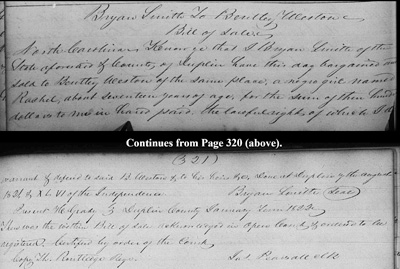 Bryan Smith To Bentley Weston
Bill of Sale
North Carolina Know ye that I Bryan Smith of the
State aforesaid & County of Duplin have this day bargained and
sold to Bentley Weston of the same place, a negro girl named
Rachel, about seventeen years of age, for the sum of three hundred
dollars to me in hand paid. the lawful right of which I do
Continues from Page 320 (above).
(321)
warrant & defend to said B. Weston & to his heirs &c, Done at Duplin 7 the august
of the Independence Bryan Smith (Seal)
Present Duplin County January Term
Then was the within Bill of sale acknowledged in open Court & ordered to be
registered. Certified by order of the Court
Copy Jas Pearsall